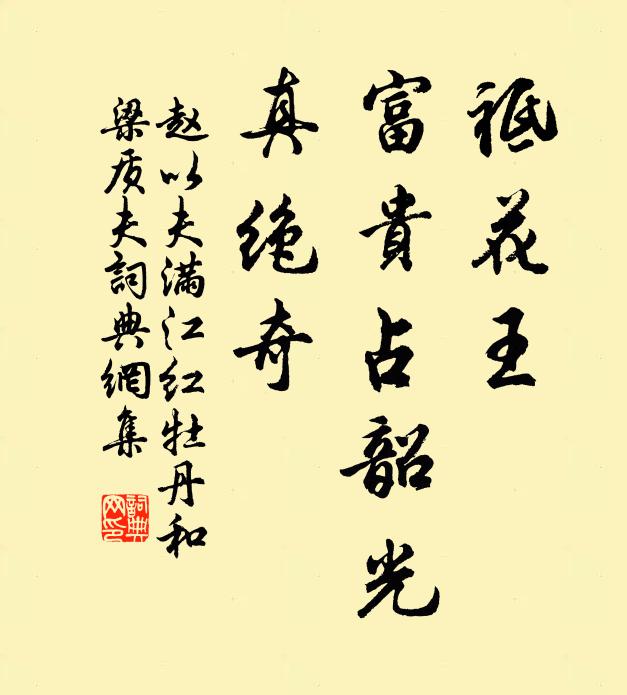 祗花王
富貴占韶光
真绝奇
赵以夫满江红牡丹和
梁质夫詞典網集
詞典网印